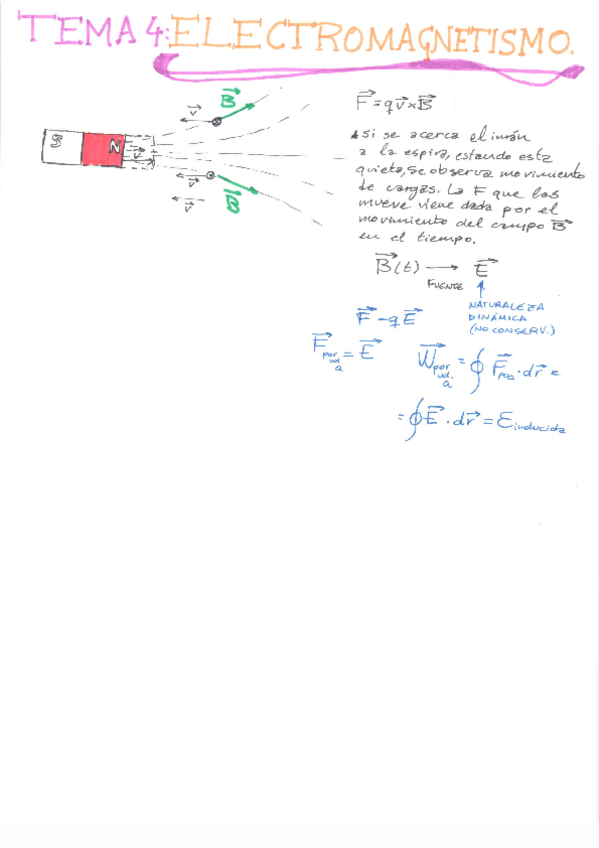 TEMA 4: ELECTROMAGNETISMO.
S N
v⃗
v⃗ B⃗
v⃗ B⃗
v⃗
F⃗ = q v⃗ × B⃗
* Si se acerca el imán
a la espira, estando esta
quieta, se observa movimiento
de cargas. La F que las
mueve viene dada por el
movimiento del campo B⃗
en el tiempo.
B⃗(t) → E⃗
FUENTE
NATURALEZA
DINÁMICA
(NO CONSERV.)
F⃗ = q E⃗
F⃗ por ud. Q = E⃗
W⃗ por ud. Q = ∮ F⃗ · dr⃗ =
= ∮ E⃗ · dr⃗ = Ɛ inducida